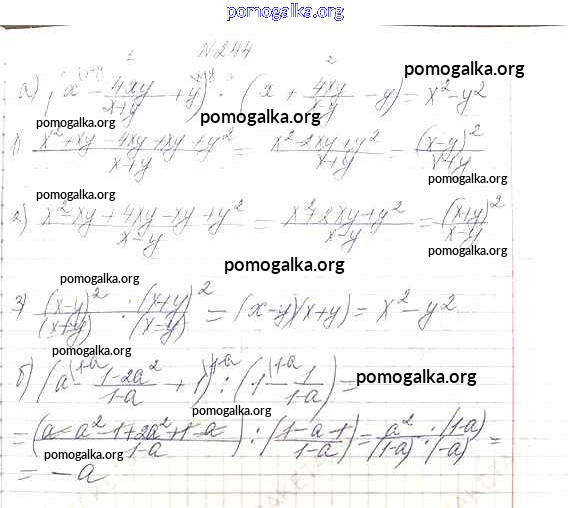 pomogalka.org
N 244
1 2
pomogalka.org
а) (x - 4xy/x+y + y) · (x + 4xy/x-y - y) = x² - y²
pomogalka.org
1) x² + xy - 4xy + xy + y²/x+y = x² - 2xy + y²/x+y = (x-y)²/x+y
pomogalka.org
pomogalka.org
2) x² - xy + 4xy - xy + y²/x-y = x² + 2xy + y²/x-y = (x+y)²/x-y
pomogalka.org
pomogalka.org
pomogalka.org
3) (x-y)²/(x+y) · (x+y)²/(x-y) = (x-y)(x+y) = x² - y²
pomogalka.org
б) (a - 1-2a²/1-a + 1) : (1 - 1/1-a) =
pomogalka.org
pomogalka.org
= (a - a² - 1 + 2a² + 1 - a/1-a) : (1-a-1/1-a) = a² · (1-a)/(1-a) · (-a) =
pomogalka.org
= -a